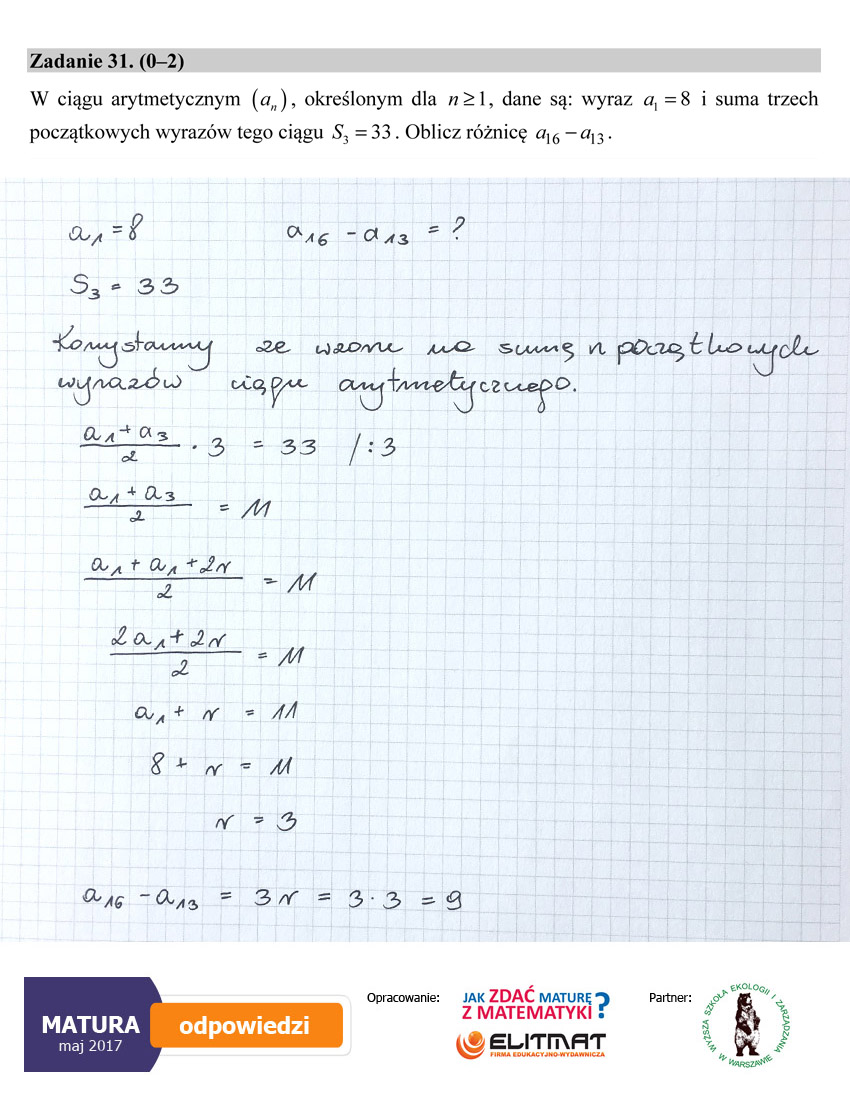 Zadanie 31. (0–2)
W ciągu arytmetycznym (aₙ), określonym dla n ≥ 1, dane są: wyraz a₁ = 8 i suma trzech
początkowych wyrazów tego ciągu S₃ = 33. Oblicz różnicę a₁₆ − a₁₃.
a₁ = 8 a₁₆ - a₁₃ = ?
S₃ = 33
Korzystamy ze wzoru na sumę n początkowych
wyrazów ciągu arytmetycznego.
(a₁ + a₃)/2 · 3 = 33 /:3
(a₁ + a₃)/2 = 11
(a₁ + a₁ + 2r)/2 = 11
(2a₁ + 2r)/2 = 11
a₁ + r = 11
8 + r = 11
r = 3
a₁₆ - a₁₃ = 3r = 3 · 3 = 9
MATURA
maj 2017
odpowiedzi
Opracowanie:
JAK ZDAĆ MATURĘ
Z MATEMATYKI?
ELITMAT
FIRMA EDUKACYJNO-WYDAWNICZA
Partner:
WYŻSZA SZKOŁA EKOLOGII I ZARZĄDZANIA
W WARSZAWIE